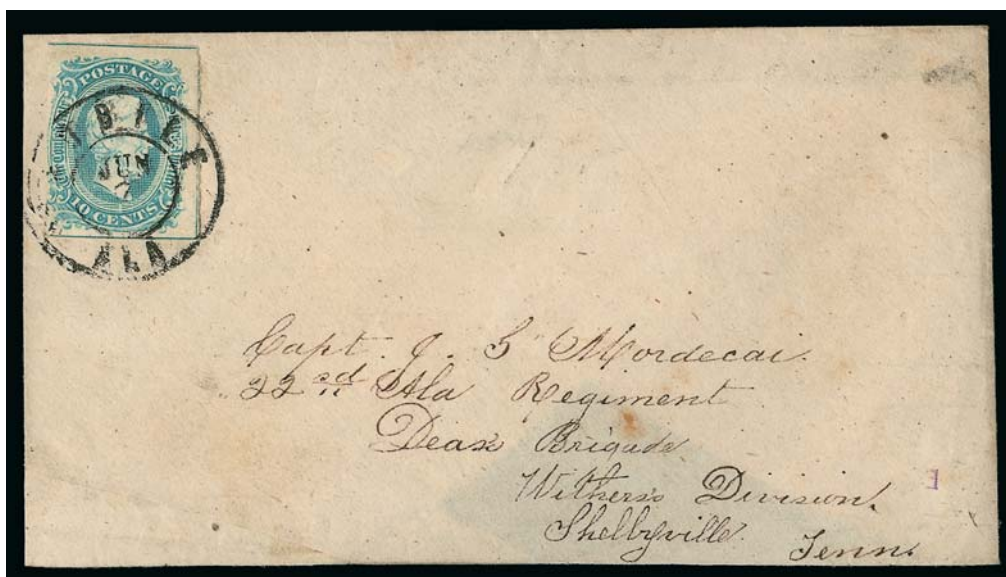 POSTAGE
JUN
7
10 CENTS
ALA
Capt. J. S Mordecai.
22nd Ala Regiment
Deas's Brigade
Withers's Division.
Shelbyville. Tenn.